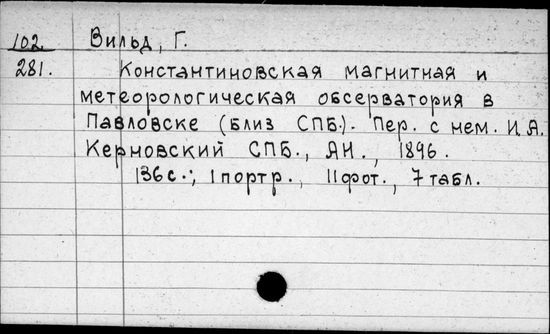 102 Вильд, Г.
281. Константиновская магнитная и
метеорологическая обсерватория в
Павловске (близ СПБ.). Пер. с нем. И.А.
Керновский СПБ., АН., 1896.
136 с.; 1 портр., 11 фот., 7 табл.